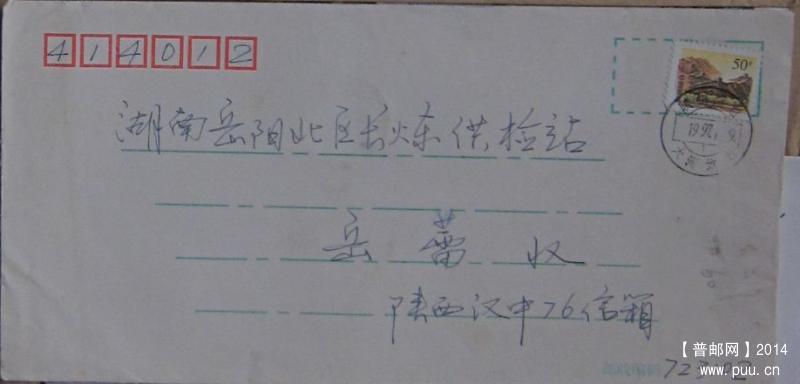 414012
50分
湖南岳阳北区长炼供检站
1997.
岳蕾 收
陕西汉中76信箱
723102
【普邮网】2014
www.puu.cn